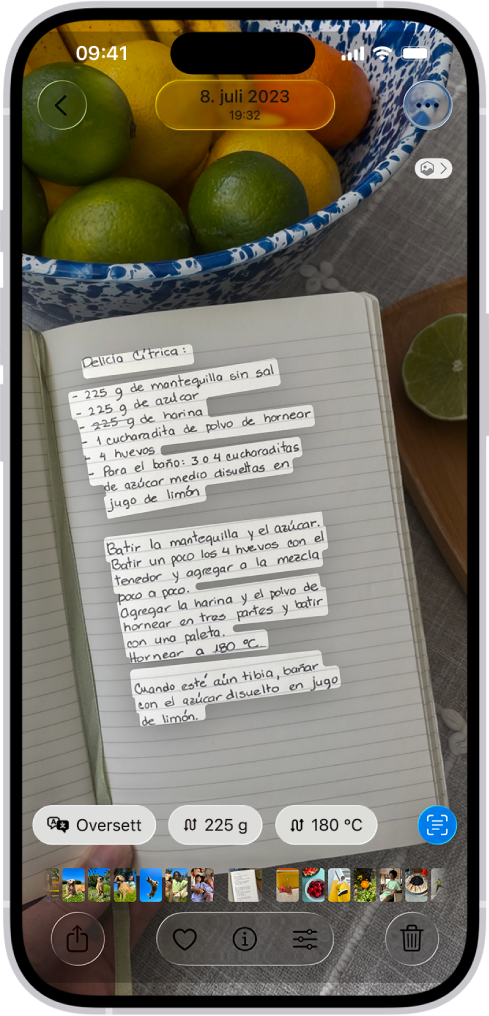 09:41
8. juli 2023
19:32
Delicia Cítrica:
- 225 g de mantequilla sin sal
- 225 g de azúcar
- 225 g de harina
- 1 cucharadita de polvo de hornear
- 4 huevos
- Para el baño: 3 o 4 cucharaditas
de azúcar medio disueltas en
jugo de limón
Batir la mantequilla y el azúcar.
Batir un poco los 4 huevos con el
tenedor y agregar a la mezcla
poco a poco.
Agregar la harina y el polvo de
hornear en tres partes y batir
con una paleta.
Hornear a 180 °C.
Cuando esté aún tibia, bañar
con el azúcar disuelto en jugo
de limón.
Oversett
225 g
180 °C